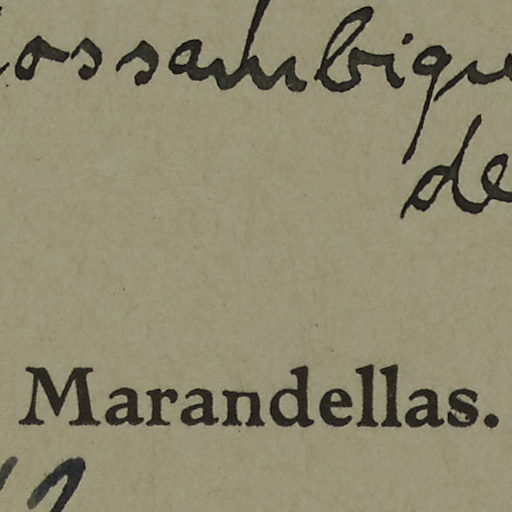 ossambique
de
Marandellas.